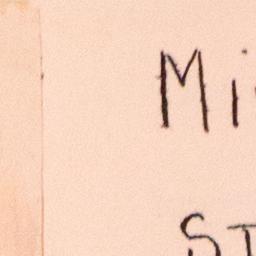 Mi
ST